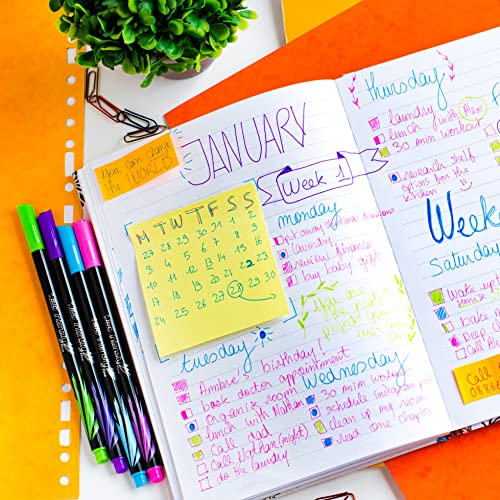 You can change
the WORLD
JANUARY
Week 1
M T W T F S S
27 28 29 30 31 1 2
3 4 5 6 7 8 9
10 11 12 13 14 15 16
17 18 19 20 21 22 23
24 25 26 27 28 29 30
monday
put away
laundry
review finances
buy baby gift
You are
tuesday
Ambre's birthday!
book doctor appointment
organize room
lunch with Nathan
call dad
call Nathan (night)
do the laundry
Wednesday
30 min workout
schedule instagram post
clean up my room
read one chapter
thursday
laundry
lunch (with
30 min workout
research shelf
options for the
kitchen
Week
Saturday
Wake up
bake
Deep
Call
Call